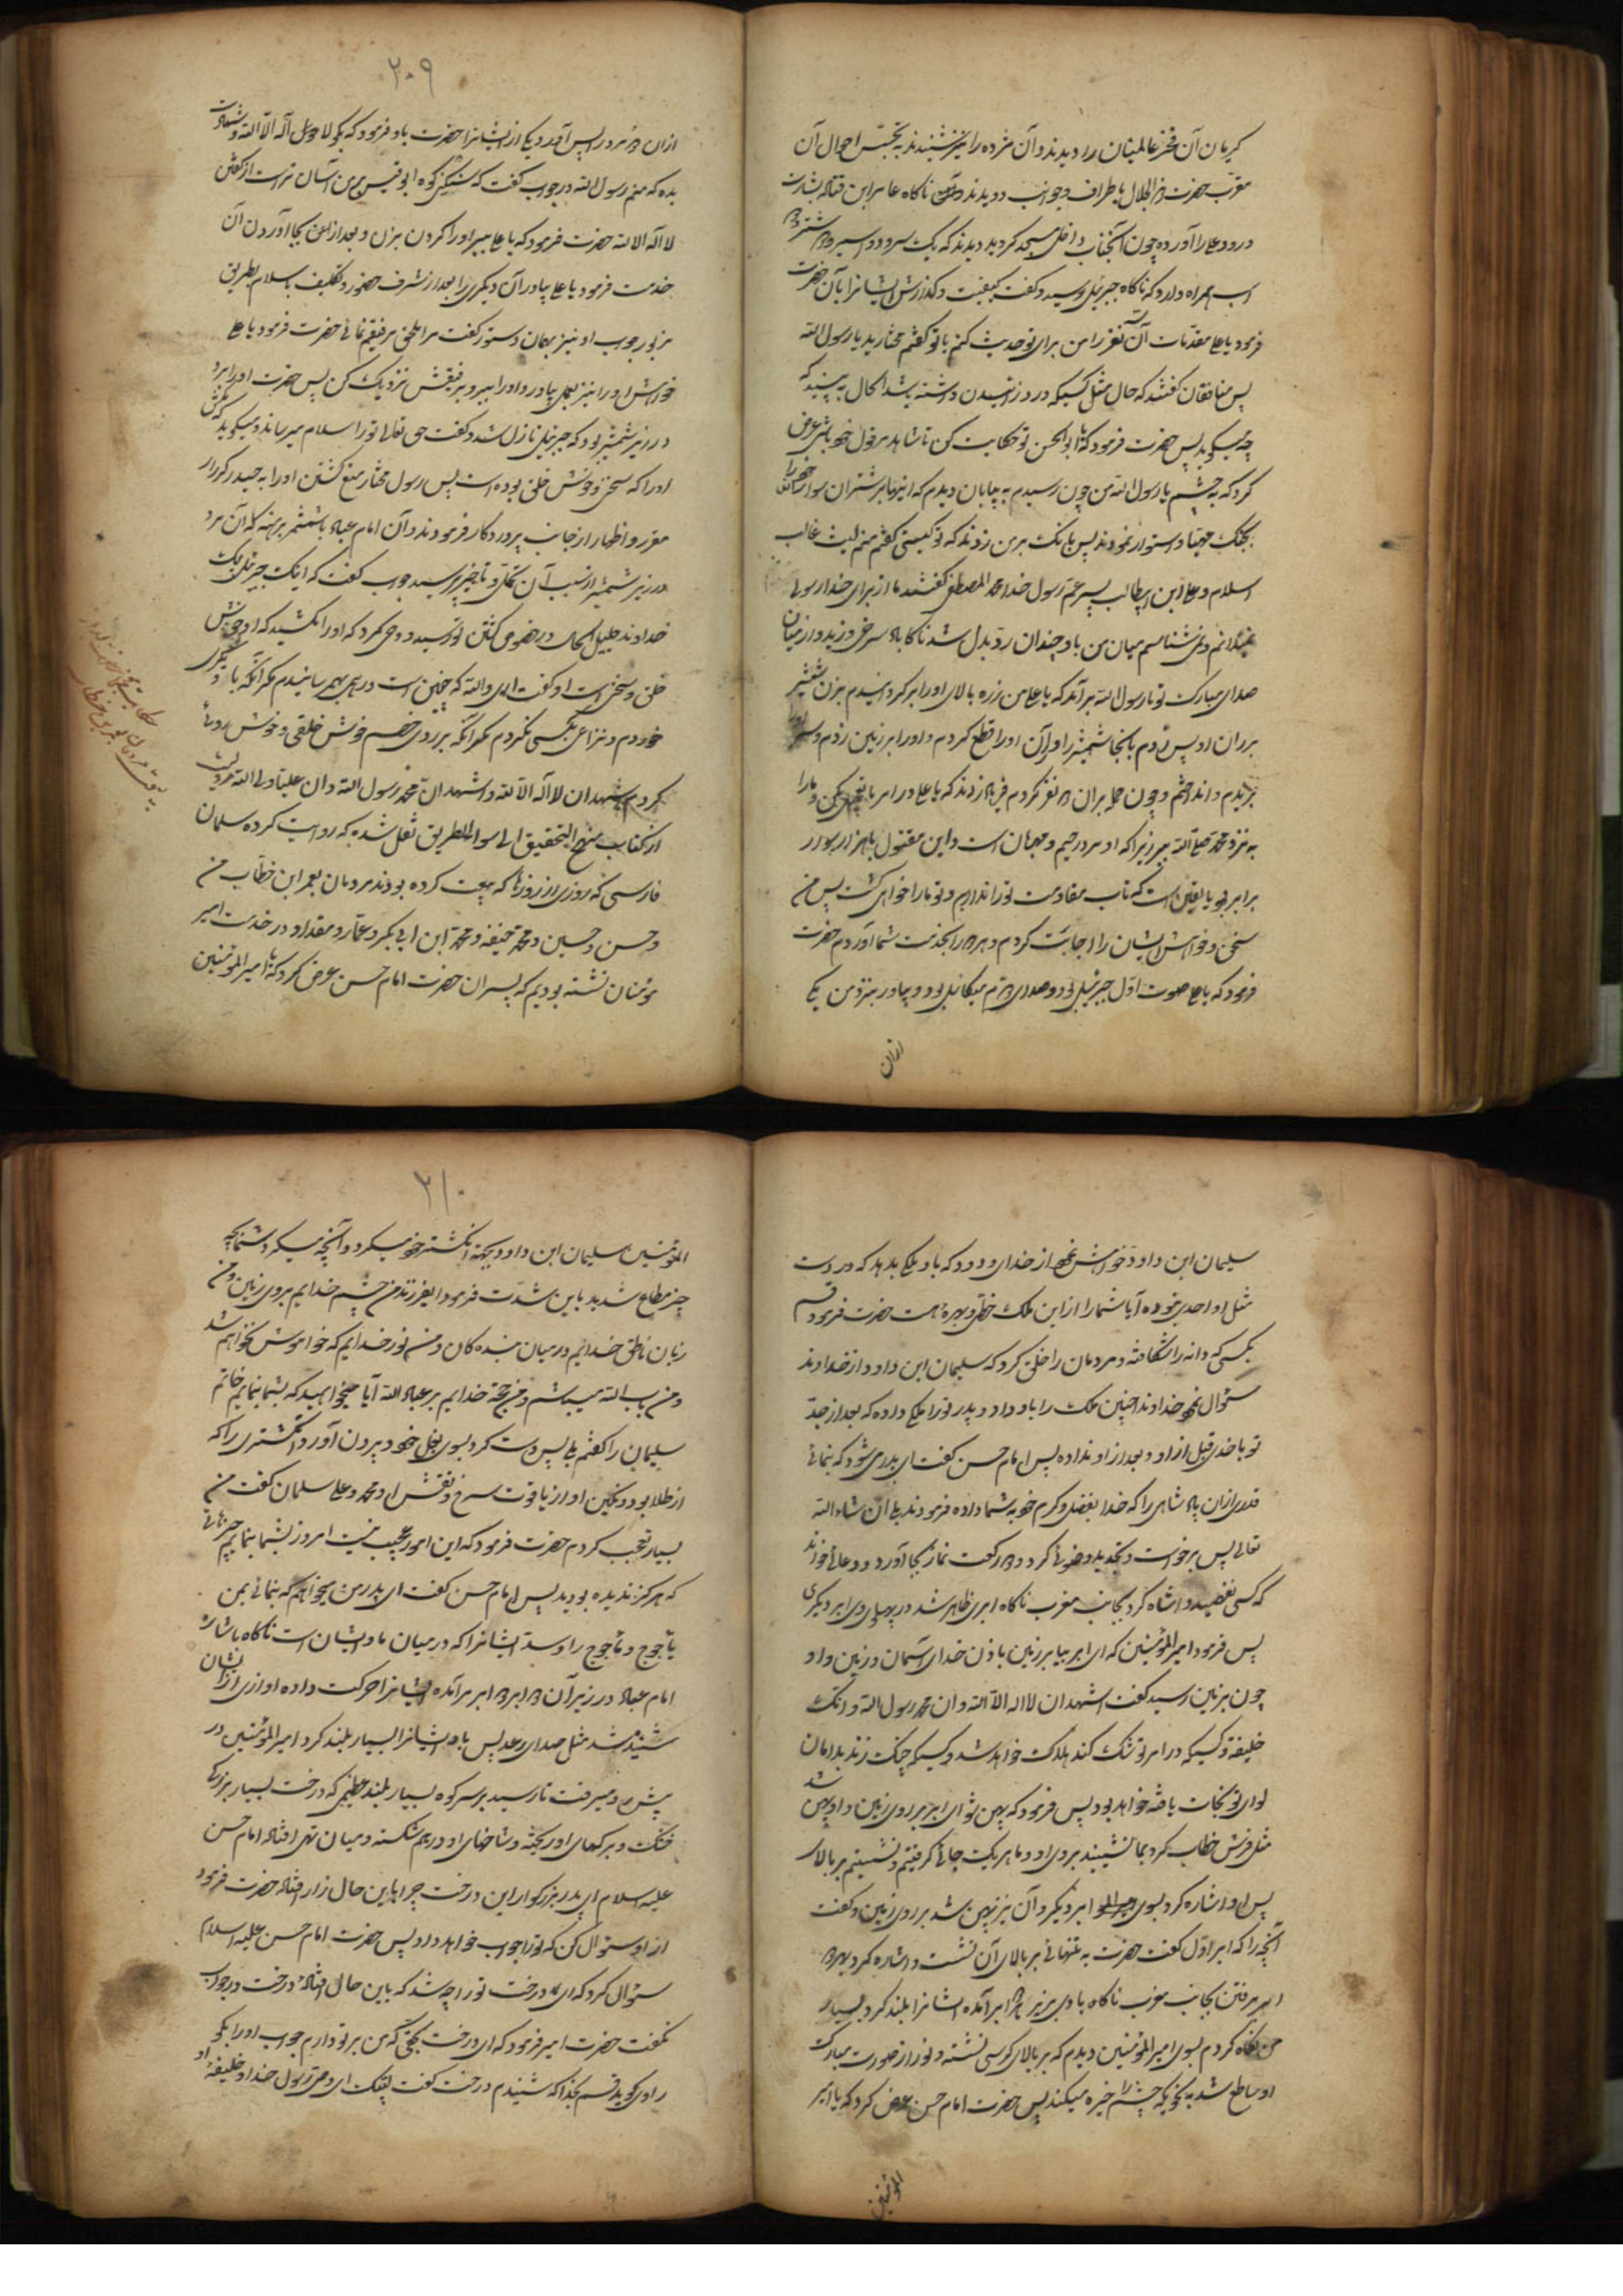 کریان آن فخر عالمیان را دیدند و آن مژده را نیز شنیدند به تجسّس احوال آن
مقرّب حضرت ذو الجلال باطراف و جوانب دویدند ناکاه عامر ابن قتاده بشارت
درود علی را آورده چون آنجناب داخل مسجد کردید دیدند که یک سر و دو اسیر و شتر و
اسب همراه دارد که ناکاه جبرئیل رسید و کفت کیفیت و کذارش ایشانرا بآن حضرت
فرمود یا علی مقدّمات آن نفر را من برای تو حدیث کنم یا تو کفتم مختارید یا رسول الله
پس منافقان کفتند که حال مثل کسیکه درد زائیدن داشته باشد الحال به بینید که
چه میکوید پس حضرت فرمود که یا ابو الحسن تو حکایت کن تا شاهد بر قول خود باشی عرض
کرد که به چشم یا رسول الله من چون رسیدم به بیابان دیدم که اینها بر شتران سوار
بجنک مهیّا و استوار نمودند پس بانک بر من زدند که تو کیستی کفتم منم لیث غالب
اسلام و علی ابن ابیطالب پسر عمّ رسول خدا محمد المصطفی کفتند ما از برای خدا رسولی
نمیدانم و نمی شناسم میان من و او چندان ردّ بدل شد تا کاه باد سرخی وزید و از میان
صدای مبارک تو یا رسول الله برآمد که یا علی من زره بالای او را بر کردانیدم بزن شمشیر
بر ران او پس زدم بانجا شمشیر را و ران او را قطع کردم و او را بر زمین زدم و سر او را
بریدم و انداختم و چون حمله بران نفر کردم فریاد زدند که یا علی در امر ما تعجیل مکن و ما را
به نزد محمد صلی الله ببر زیرا که او مرد رحیم و مهربان است و این مقتول با هزار سوار
برابر بود یا یقین است که تاب مقاومت تو را نداریم و تو ما را خواهی کشت پس من
سخن و خواهش ایشان را اجابت کردم و هر دو را بخدمت شما آوردم حضرت
فرمود که یا علی صوت اوّل جبرئیل بود و صدای دوم میکائیل بود و بیاور بنزد من یکی
ازان
۲۰۹
ازان دو مرد را پس آورد یکی از ایشانرا حضرت باو فرمود که بکو لا اله الا الله و شهادت
بده که منم رسول الله در جواب کفت که سنکینی کوه ابو قبیس بر من آسان تر است از کفتن
لا اله الا الله حضرت فرمود که یا علی ببر او را کردن بزن و بعد از بجا آوردن آن
خدمت فرمود یا علی بیاور آن دیکری را بعد از تشرف حضور و تکلیف باسلام بطریق
مزبور جواب او نیز بهمان دستور کفت مرا ملحق برفیقم نمائی حضرت فرمود یا علی
خواهش او را نیز بعمل بیاور و او را ببر و برفیقش نزدیک کن پس حضرت او را برد
در زیر شمشیر بود که جبرئیل نازل شد و کفت حق تعالی تو را سلام میرساند و میکوید که مکش
او را که سخی و خوش خلق بوده است پس رسول مختار منع کشتن او را به حیدر کرار
مقرر و اظهار از جانب پروردکار فرمودند و آن امام عباد با شمشیر برهنه که آن مرد
در زیر شمشیر از سبب آن تکلّل و تأخیر پرسید جواب کفت که اینک جبرئیل پیک
خداوند جلیل الحال در خصوص کشتن تو رسید و وحی کرد که او را مکشید که او خوش
خلق و سخی است او کفت ای والله که چنین است درهمی بهم نرسانیدم مکر آنکه با دیکری
خوردم و نزاعی بکسی نکردم مکر آنکه بر روی خصم خوش خلقی و خوش روئی
کردم اشهد ان لا اله الا الله و اشهد ان محمد رسول الله و ان علیا ولی الله
از کتاب منهج التحقیق الی سواء الطریق نقل شده که روایت کرده سلمان
فارسی که روزی از روزها که بیعت کرده بودند مردمان بعمر ابن خطّاب من
و حسن و حسین و محمد حنیفه و محمد ابن ابی بکر و عمّار و مقداد در خدمت امیر
مؤمنان نشسته بودیم که پسران حضرت امام حسن عرض کرد که یا امیر المؤمنین
سلیمان ابن داود خواهش نمود از خدای ودود که باو ملکی بدهد که در دست
مثل او احدی نبوده آیا شما را از این ملک خطّ و بهره هست حضرت فرمود قسم
بکسی که دانه را شکافته و مردمان را خلق کرد که سلیمان ابن داود از خداوند
سؤال نمود خداوند اینچنین ملک را باو داد و پدر تو را ملکی داده که بعد از جدّ
تو با احدی قبل از او و بعد از او نداده پس امام حسن کفت ای پدر می شود که بنمائی
قدری از ان پادشاهی را که خدا بفضل و کرم خود به شما داده فرمودند بلی ان شاء الله
تعالی پس برخواست و تجدید وضوئی کرد و دو رکعت نماز بجا آورد و دعائی خواند
که کسی نفهمید و اشاره کرد بجانب مغرب ناکاه ابری ظاهر شد در پهلوی وی ابر دیکری
پس فرمود امیر المؤمنین که ای ابر بیا بر زمین باذن خدای آسمان و زمین و او
چون بزمین رسید کفت اشهد ان لا اله الا الله و ان محمد رسول الله و انک
خلیفته و کسیکه در امر تو شک کند هلاک خواهد شد و کسیکه چنک زند بدامان
لوای تو نجات یافته خواهد بود پس فرمود که پهن شو ای ابر بر روی زمین و او پهن شد
مثل فرش خطاب کرد بما نشینید بروی او و ما هر یک جائی کرفتیم و نشستیم بر بالای او
پس او اشاره کرد بسوی ابر دیکر و آن نیز پهن شد بر روی زمین و کفت
آنچه را که ابر اوّل کفت حضرت به تنهائی بر بالای آن نشست و اشاره کرد بهر دو
ابر برفتن بجانب مغرب ناکاه بادی بزیر هر دو ابر آمده ایشانرا بلند کرد بسیار
من نکاه کردم بسوی امیر المؤمنین دیدم که بر بالای کرسی نشسته و نور از صورت مبارک
او ساطع شد به نحویکه چشم را خیره میکند پس حضرت امام حسن عرض کرد که یا امیر
المؤمنین
۲۱۰
المؤمنین سلیمان ابن داود بجهة انکشتر خود میکرد و آنچه میکرد شما بچه
چیز مطاع شدید باین شدّت فرمود ایفرزند من چشم خدایم بروی زمین و من
زبان ناطق خدایم در میان بنده کان و من نور خدایم که خواموش نخواهم شد
و من باب الله میباشم و من حجة خدایم بر عباد الله آیا میخواهید که بشما بنمایم خاتم
سلیمان را کفتم بلی پس دست کرد بسوی بغل خود و بیرون آورد انکشتری را که
از طلا بود و نکین او از یاقوت سرخ و نقش او محمد و علی سلمان کفت من
بسیار تعجّب کردم حضرت فرمود که این امور عجیب نیست امروز بشما بنمایم چیزهائی
که هرکز ندیده بودید پس امام حسن کفت ای پدر من میخواهم که بنمائی بمن
یأجوج و مأجوج را و سدّ ایشانرا که در میان ما و ایشان است ناکاه باشاره
امام عباد در زیر آن دو ابر ابر برآمده ایشانرا حرکت داده اوازی از ایشان
شنیده شد مثل صدای رعد پس باد ایشانرا بسیار بلند کرد امیر المؤمنین در
پیش و میرفت تا رسید بر سر کوه بسیار بلند عظیمی که درخت بسیار بزرکی
خشک و برکهای او ریخته و شاخهای او درهم شکسته و میان تهی افتاده امام حسن
علیه السلام ای پدر بزرکوار این درخت چرا باین حال زار افتاده حضرت فرمود
از او سئوال کن که تو را جواب خواهد داد پس حضرت امام حسن علیه السلام
سئوال کرد که ای درخت تو را چه شد که باین حال افتاده درخت در جواب
نکفت حضرت امیر فرمود که ای درخت بحقّی که من بر تو دارم جواب او را بکو
راوی کوید قسم بخدا که شنیدم درخت کفت لبّیک ای وصیّ رسول خدا و خلیفهٔ او